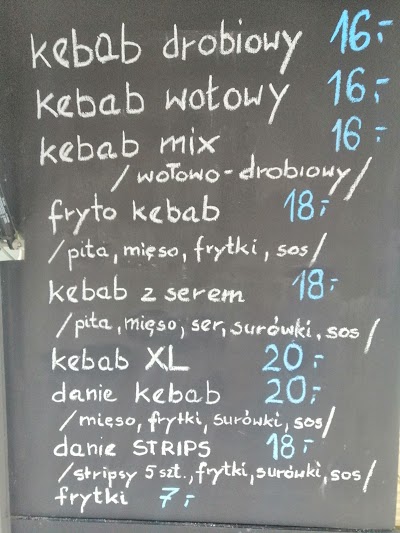 kebab drobiowy 16,-
kebab wołowy 16,-
kebab mix 16,-
/wołowo-drobiowy/
fryto kebab 18,-
/pita, mięso, frytki, sos/
kebab z serem 18,-
/pita, mięso, ser, surówki, sos/
kebab XL 20,-
danie kebab 20,-
/mięso, frytki, surówki, sos/
danie STRIPS 18,-
/stripsy 5 szt., frytki, surówki, sos/
frytki 7,-